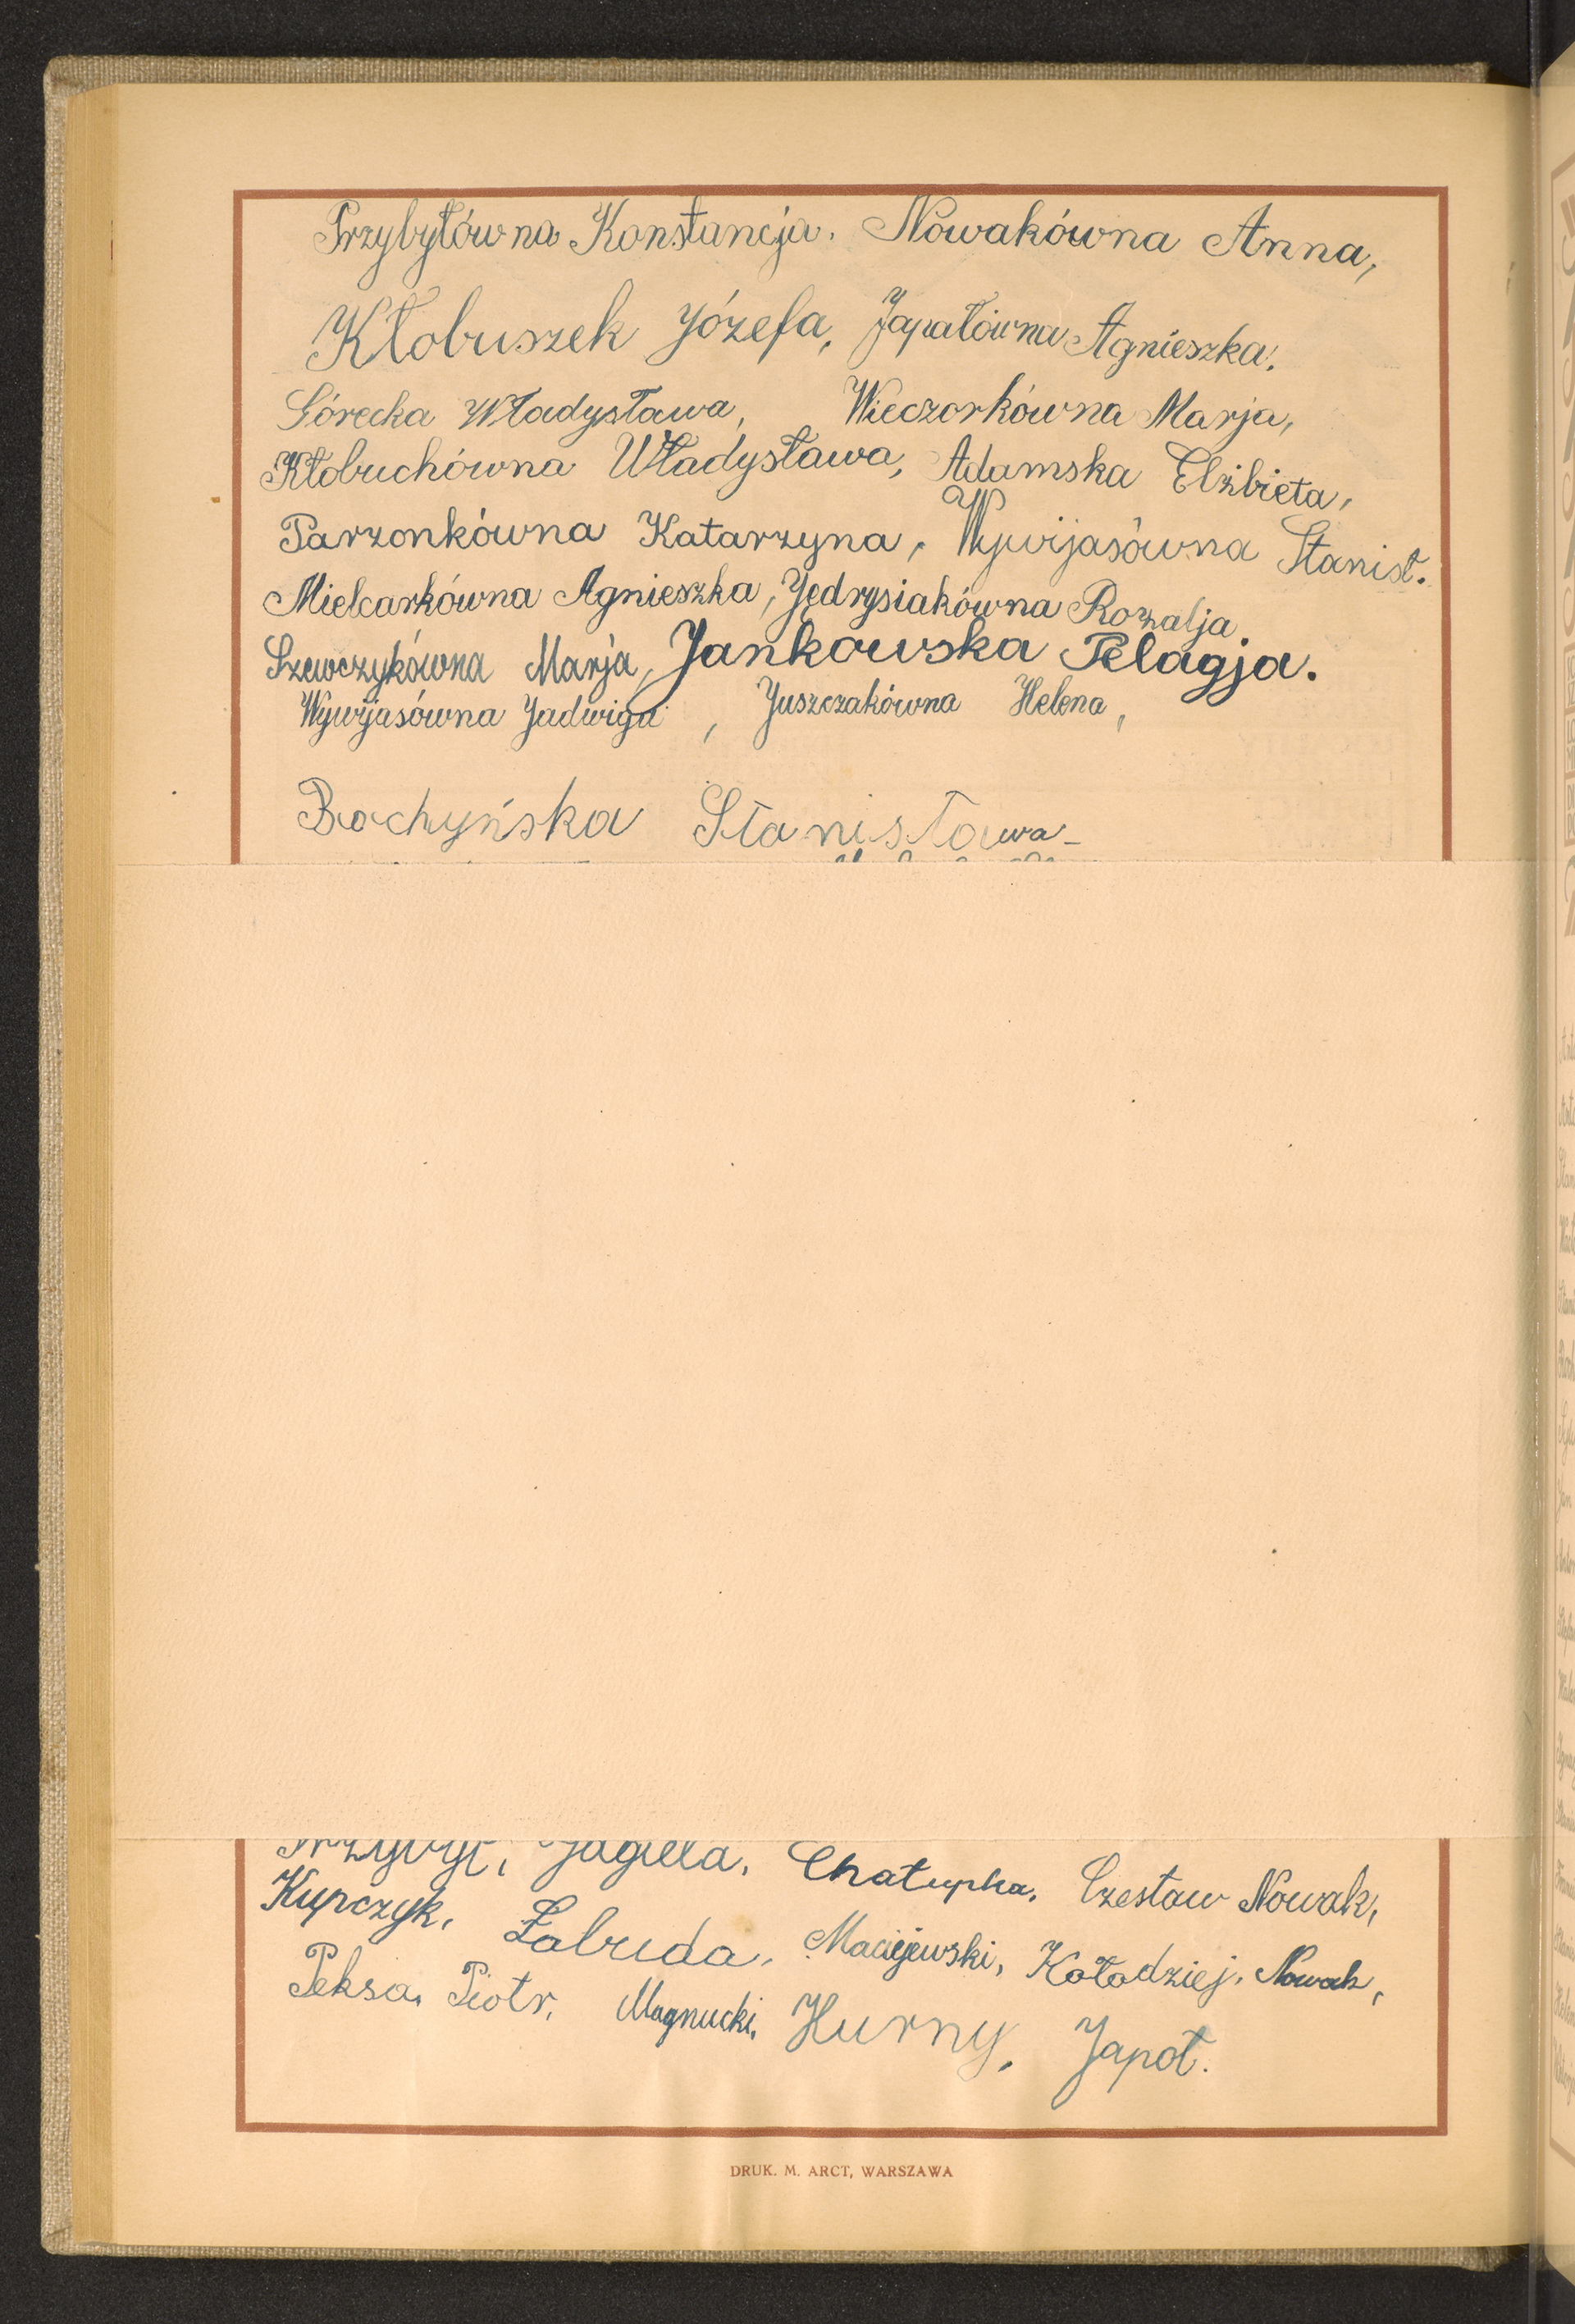 Przybyłówna Konstancja. Nowakówna Anna,
Kłobuszek Józefa, Japałówna Agnieszka.
Górecka Władysława, Wieczorkówna Marja,
Kłobuchówna Władysława, Adamska Elżbieta,
Parzonkówna Katarzyna, Wywijasówna Stanisł.
Mielcarkówna Agnieszka, Jędrysiakówna Rozalja.
Szewczykówna Marja, Jankowska Pelagja.
Wywijasówna Jadwiga, Juszczakówna Helena,
Bochyńska Stanisława
Przybył, Jagiela, Chałupka, Czesław Nowak,
Kupczyk, Łabuda, Maciejewski, Kołodziej, Nowak,
Peksa Piotr, Magnucki, Hurny, Japoł.
DRUK. M. ARCT, WARSZAWA